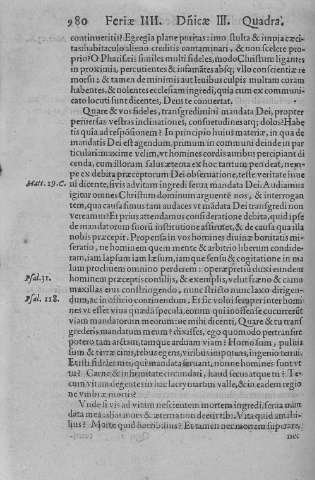 980 Feriæ IIII. Dñicæ III. Quadra.
continueritis? Egregia plane puritas: imo stulta & impia cæci-
tas: habitaculo alieno creditis contaminari, & non scelere pro-
prio? O Pharisæis similes multi fideles, modo Christum ligantes
in proximis, percutientes & infamātes absq; vllo conscientiæ re
morsu: & tamen de minimis ad leuibus culpis multam coram
habentes, & nolentes ecclesiam ingredi, quia cum ex communi-
cato locuti sunt dicentes, Deus te conuertat.
Quare & vos fideles, transgredimini mandata Dei, propter
peruersas vestras inclinationes, consuetudines atq; dolos? Habe
tis quid ad respōsionem? In principio huius materiæ, in qua de
mandatis Dei est agendum, primum in communi deinde in par
ticulari maxime velim, vt homines cordis auribus percipiant di
cenda, cum illorum salus æterna ex hoc tantum pendeat, nem-
pe ex debita præceptorum Dei obseruatione, teste veritate iuue
Matt. 19. C. ni dicente, si vis ad vitam ingredi serua mandata Dei. Audiamus
igitur omnes Christum dominum arguentē nos, & interrogan
tem, qua causa simus tam audaces vt mādata Dei transgredi non
vereamur? Et prius attendamus consideratione debita, quid ipse
de mandatorum suorū institutione asserat, & de causa qua illa
nobis præcepit. Propensa in vos homines diuinæ bonitatis mi-
seratio, ne hominem quem mente & arbitrio liberum condide-
ram, iam lapsum iam læsum, iamque sensu & cogitatione in ma
lum prochiuem omnino perderem: operæ pretiū duxi eundem
Psal. 31. hominem præceptis, consilijs, & exemplis, velut fræno & camo
maxillas eius constringendo, nunc stricto nunc laxo dirigen-
Psal. 118. dum, ac in officio continendum. Et sic volui semper inter homi
nes vt esset viuus quidā specula, eorum qui inoffense cucurrerūt
viam mandatorum meorum: ne mihi dicenti, Quare & tu trans
grederis mandatum meum? dixisses, ego quomodo pertransire
potero tam arctam, tamque arduam viam? Homo sum, puluis
sum & terræ cinis, rebus egens, viribus impotens, ingenio tenuis.
Et tibi fidæles mei, qui mandata seruant, nonne homines sunt vt
tu? Carne & infirmitate circumdati, haud secus atque tu? Te-
cum vitam degentes in hac lacrymarum valle, & in eadem regio
ne vmbræ mortis?
Vnde si vis ad vitam nescientem mortem ingredi, serua man
data mea
lius? Morte quid horribilius? Et tamen nec mortem superare,
nec